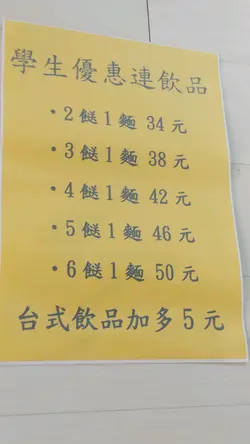 學生優惠連飲品
・2餸1麵 34元
・3餸1麵 38元
・4餸1麵 42元
・5餸1麵 46元
・6餸1麵 50元
台式飲品加多5元